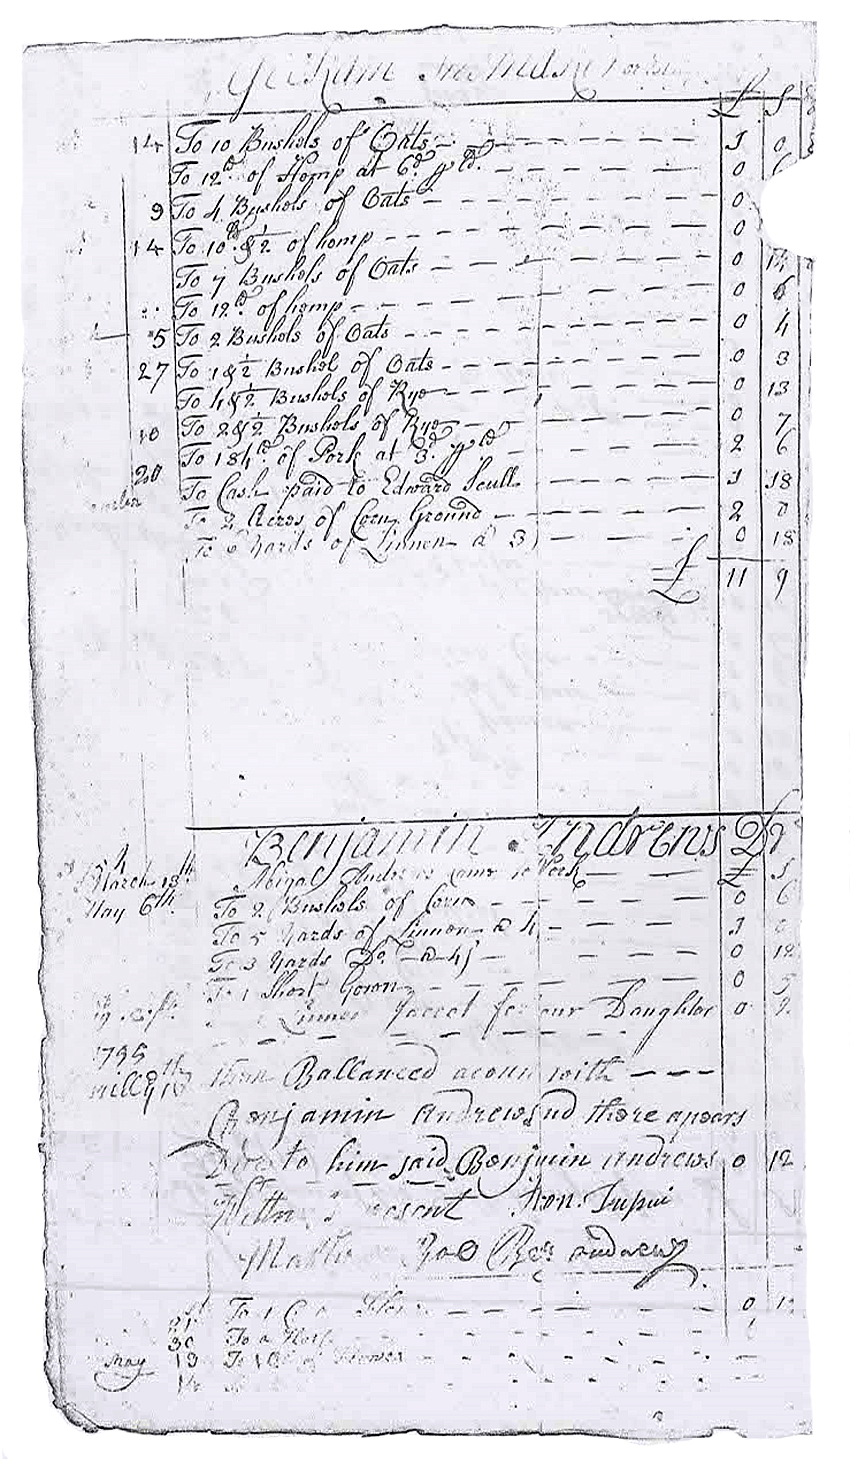 £ S
14 To 10 Bushels of Oats 1 0
To 12d. of Hemp at 6d. p ld. 0
9 To 4 Bushels of Oats 0
14 To 10 & 1/2 of hemp 0
To 7 Bushels of Oats 0 14
To 12d. of hemp 0 6
5 To 2 Bushels of Oats 0 4
27 To 1 & 1/2 Bushel of Oats 0 3
To 4 & 1/2 Bushels of Rye 0 13
10 To 2 & 1/2 Bushels of Rye 0 7
To 184d. of Pork at 3d. p ld 2 6
20 To Cash paid to Edward Scull 1 18
To 2 Acres of Corn Ground 2 0
To 6 Yards of Linnen a 3/ 0 18
£ 11 9
Benjamin Andrews Dr
March 18th Abigal Andrews came to Work £ S
May 6th. To 2 Bushels of Corn 0 6
To 5 Yards of Linnen a 4/ 1 0
To 3 Yards Do. a 4/ 0 12
To 1 Short Gown 0 5
Linnen for our Daughter 0 2
1795
then Ballanced acount with
Benjamin Andrews nd there apears
Due to him said Benjmin andrews 0 12
Aron Dupui
andrews
To 1 0 12
30 To a
May 13 To
14